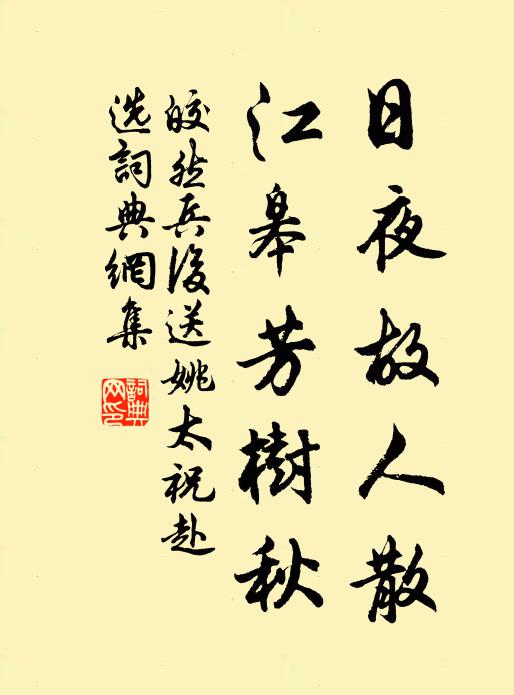 日夜故人散
江皋芳樹秋
皎然兵後送姚太祝赴
选詞典網集
詞典网印